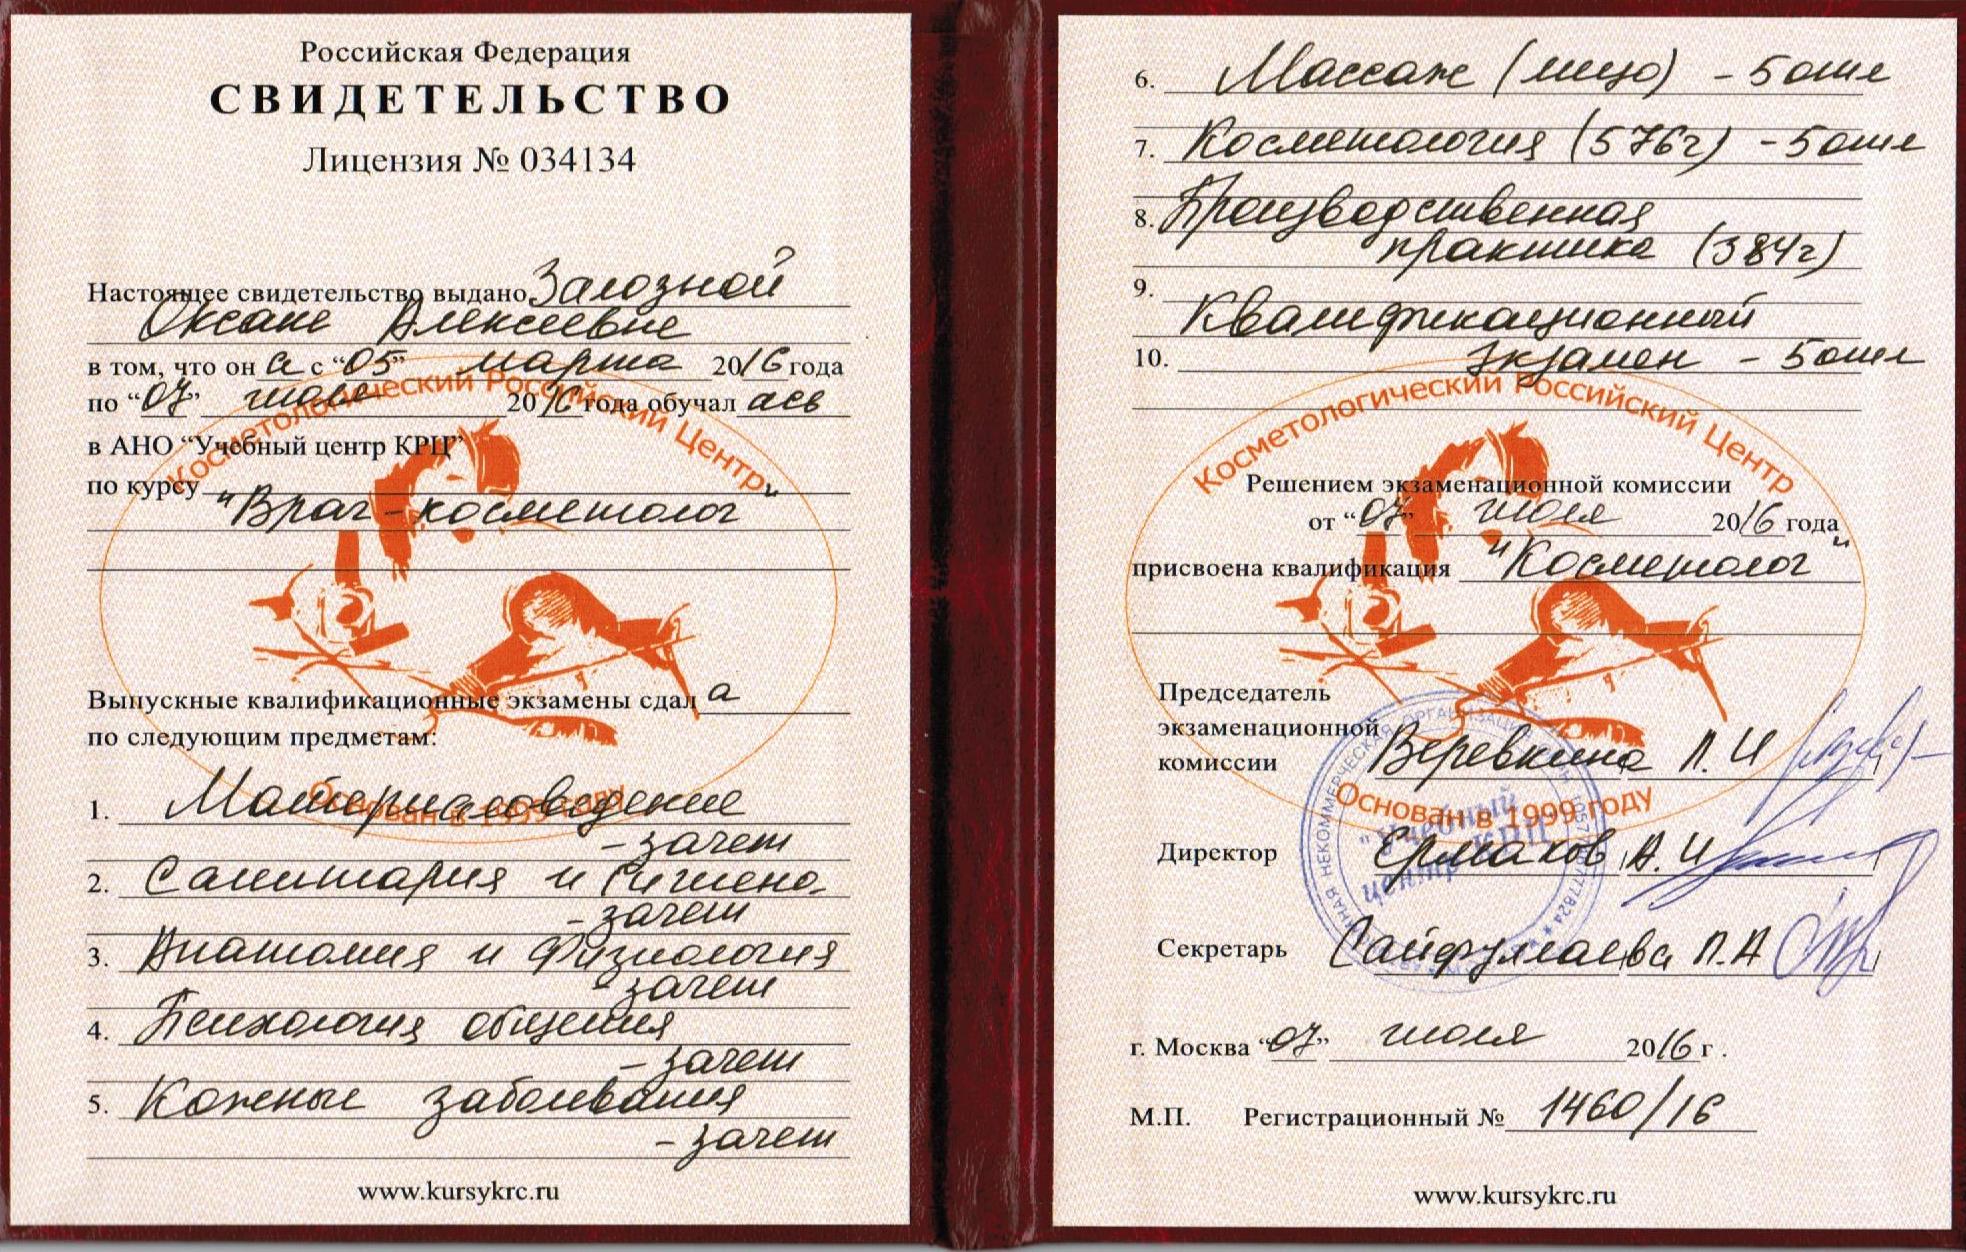 Российская Федерация
СВИДЕТЕЛЬСТВО
Лицензия № 034134
Настоящее свидетельство выдано Залозной
Оксане Алексеевне
в том, что он а с “05” марта 2016 года
по “07” июля 2016 года обучал ась
в АНО “Учебный центр КРЦ”
по курсу
"Врач-косметолог"
Косметологический Российский Центр
Выпускные квалификационные экзамены сдал а
по следующим предметам:
Основан в 1999 году
1. Материаловедение
- зачет
2. Санитария и Гигиена
- зачет
3. Анатомия и Физиология
- зачет
4. Психология общения
- зачет
5. Кожные заболевания
- зачет
www.kursykrc.ru
6. Массаж (лицо) - 5 отл
7. Косметология (576г) - 5 отл
8. Производственная
практика (384г)
9.
Квалификационный
10. экзамен - 5 отл
Косметологический Российский Центр
Решением экзаменационной комиссии
от “07” июля 2016 года
присвоена квалификация "Косметолог"
Председатель
экзаменационной
комиссии Веревкина Л. И
Основан в 1999 году
"Учебный
центр КРЦ"
Директор Ермаков А. И
Секретарь Сайфуллаева Л. А
г. Москва “07” июля 2016 г .
М.П. Регистрационный № 1460/16
www.kursykrc.ru